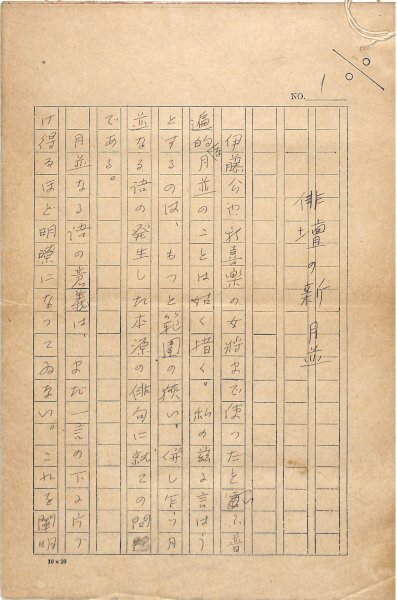 NO. 1
俳壇の新月並
伊藤公や於喜楽の女将まで使つたといふ普
遍的な月並のことは姑く措く。私の茲に言はう
とするのは、もつと範囲の狭い、併し乍ら月
並なる語の発生した本源の俳句に就ての問
である。
月並なる語の意義は、まだ一言の下に片づ
け得るほど明瞭になつてゐない。これを闡明
10×20